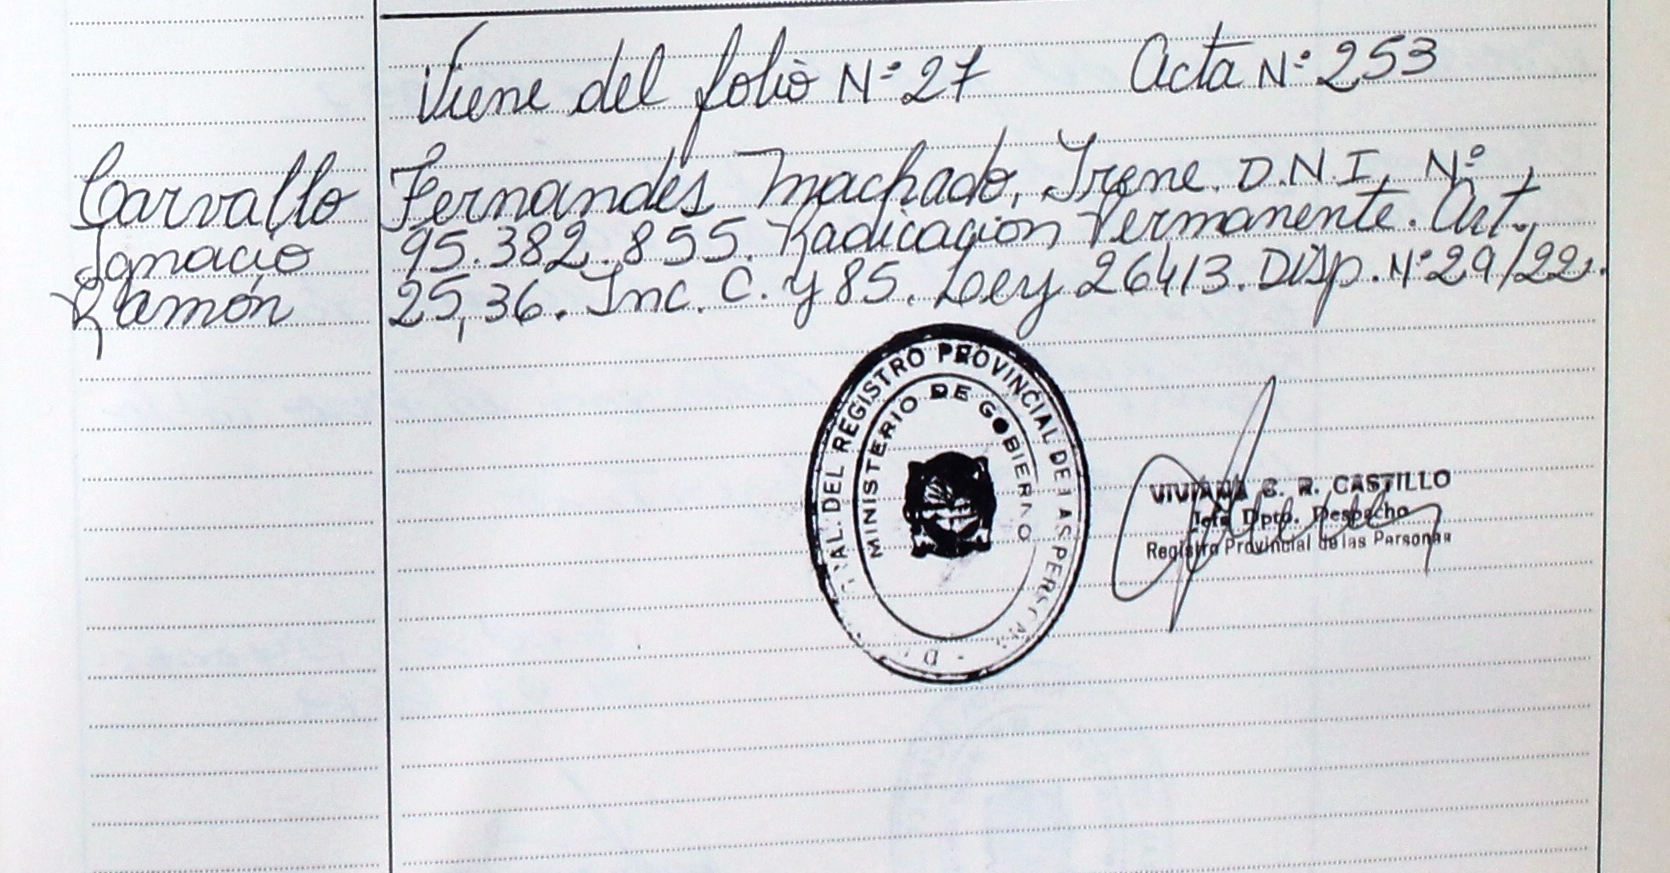 Viene del folio N° 27 Acta N° 253
Carvallo
Ignacio
Ramón
Fernandes Machado, Irene. D.N.I. N°
95.382.855. Radicación Permanente. Art.
25,36. Inc. C. y 85. Ley 26413. Disp. N° 29/22.
REGISTRO PROVINCIAL DE LAS PERSONAS
MINISTERIO DE GOBIERNO
VIVIANA C. R. CASTILLO
Jefa Dpto. Despacho
Registro Provincial de las Personas